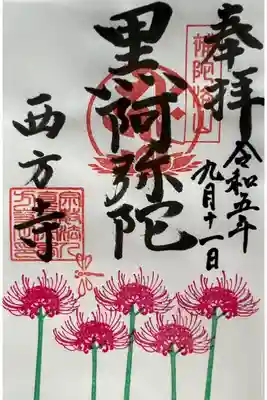 奉拝
令和五年
九月十一日
黒阿弥陀
西方寺